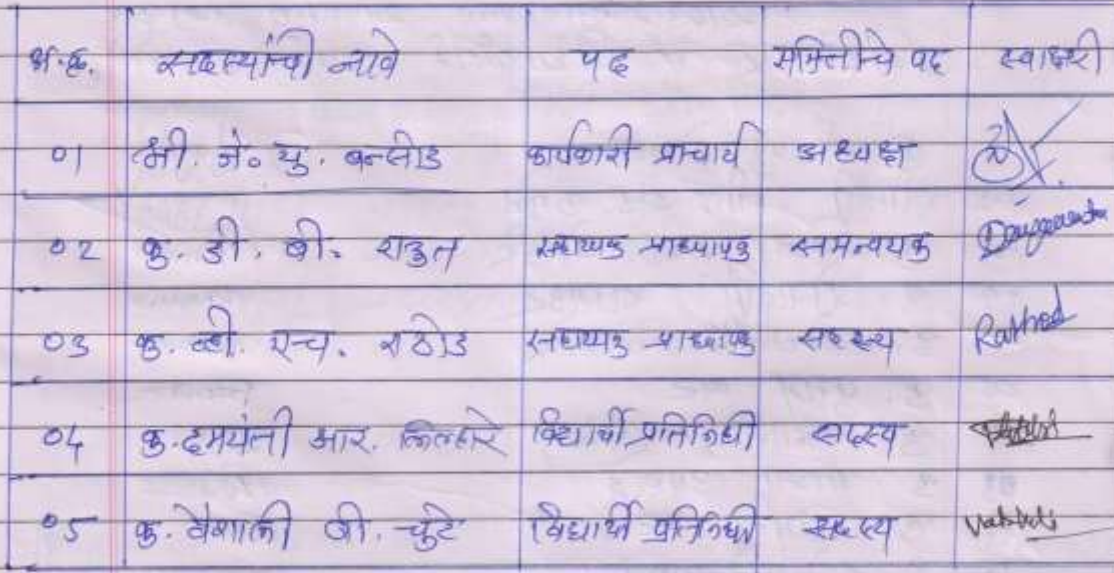 अ.क्र. सदस्यांची नावे पद समितीचे पद स्वाक्षरी
01 श्री. जे. यु. बन्सोड कार्यकारी प्राचार्य अध्यक्ष
02 कु. डी. बी. राऊत सहाय्यक प्राध्यापक समन्वयक
03 कु. व्ही. एच. राठोड सहाय्यक प्राध्यापक सदस्य Rathod
04 कु. दमयंती आर. विद्यार्थी प्रतिनिधी सदस्य
05 कु. वैशाली बी. चुटे विद्यार्थी प्रतिनिधी सदस्य